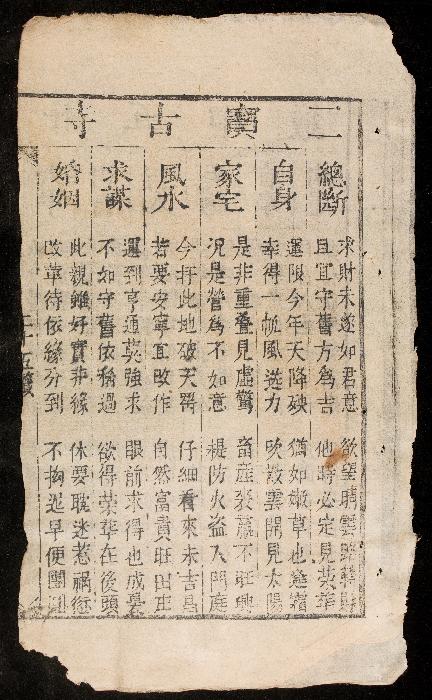 三寶古寺
總斷
求財未遂如君意
且宜守舊方為吉 他時必定見榮華
自身
運限今年天降殃 猶如嫩草也遭霜
幸得一帆風送力 吹散雲開見太陽
家宅
是非重叠見虛驚 畜產衰羸不旺興
況是營為不如意 提防火盜入門庭
風水
今將此地破天罡 仔細看來未吉昌
若要安寧宜改作 自然富貴旺田庄
求謀
運到亨通莫強求 眼前求得也成憂
不如守舊依稱過 欲得榮華在後頭
婚姻
此親雖好實非緣 休要耽迷惹禍愆
改革待依緣分到 不拘遲早便團圓
二十五簽